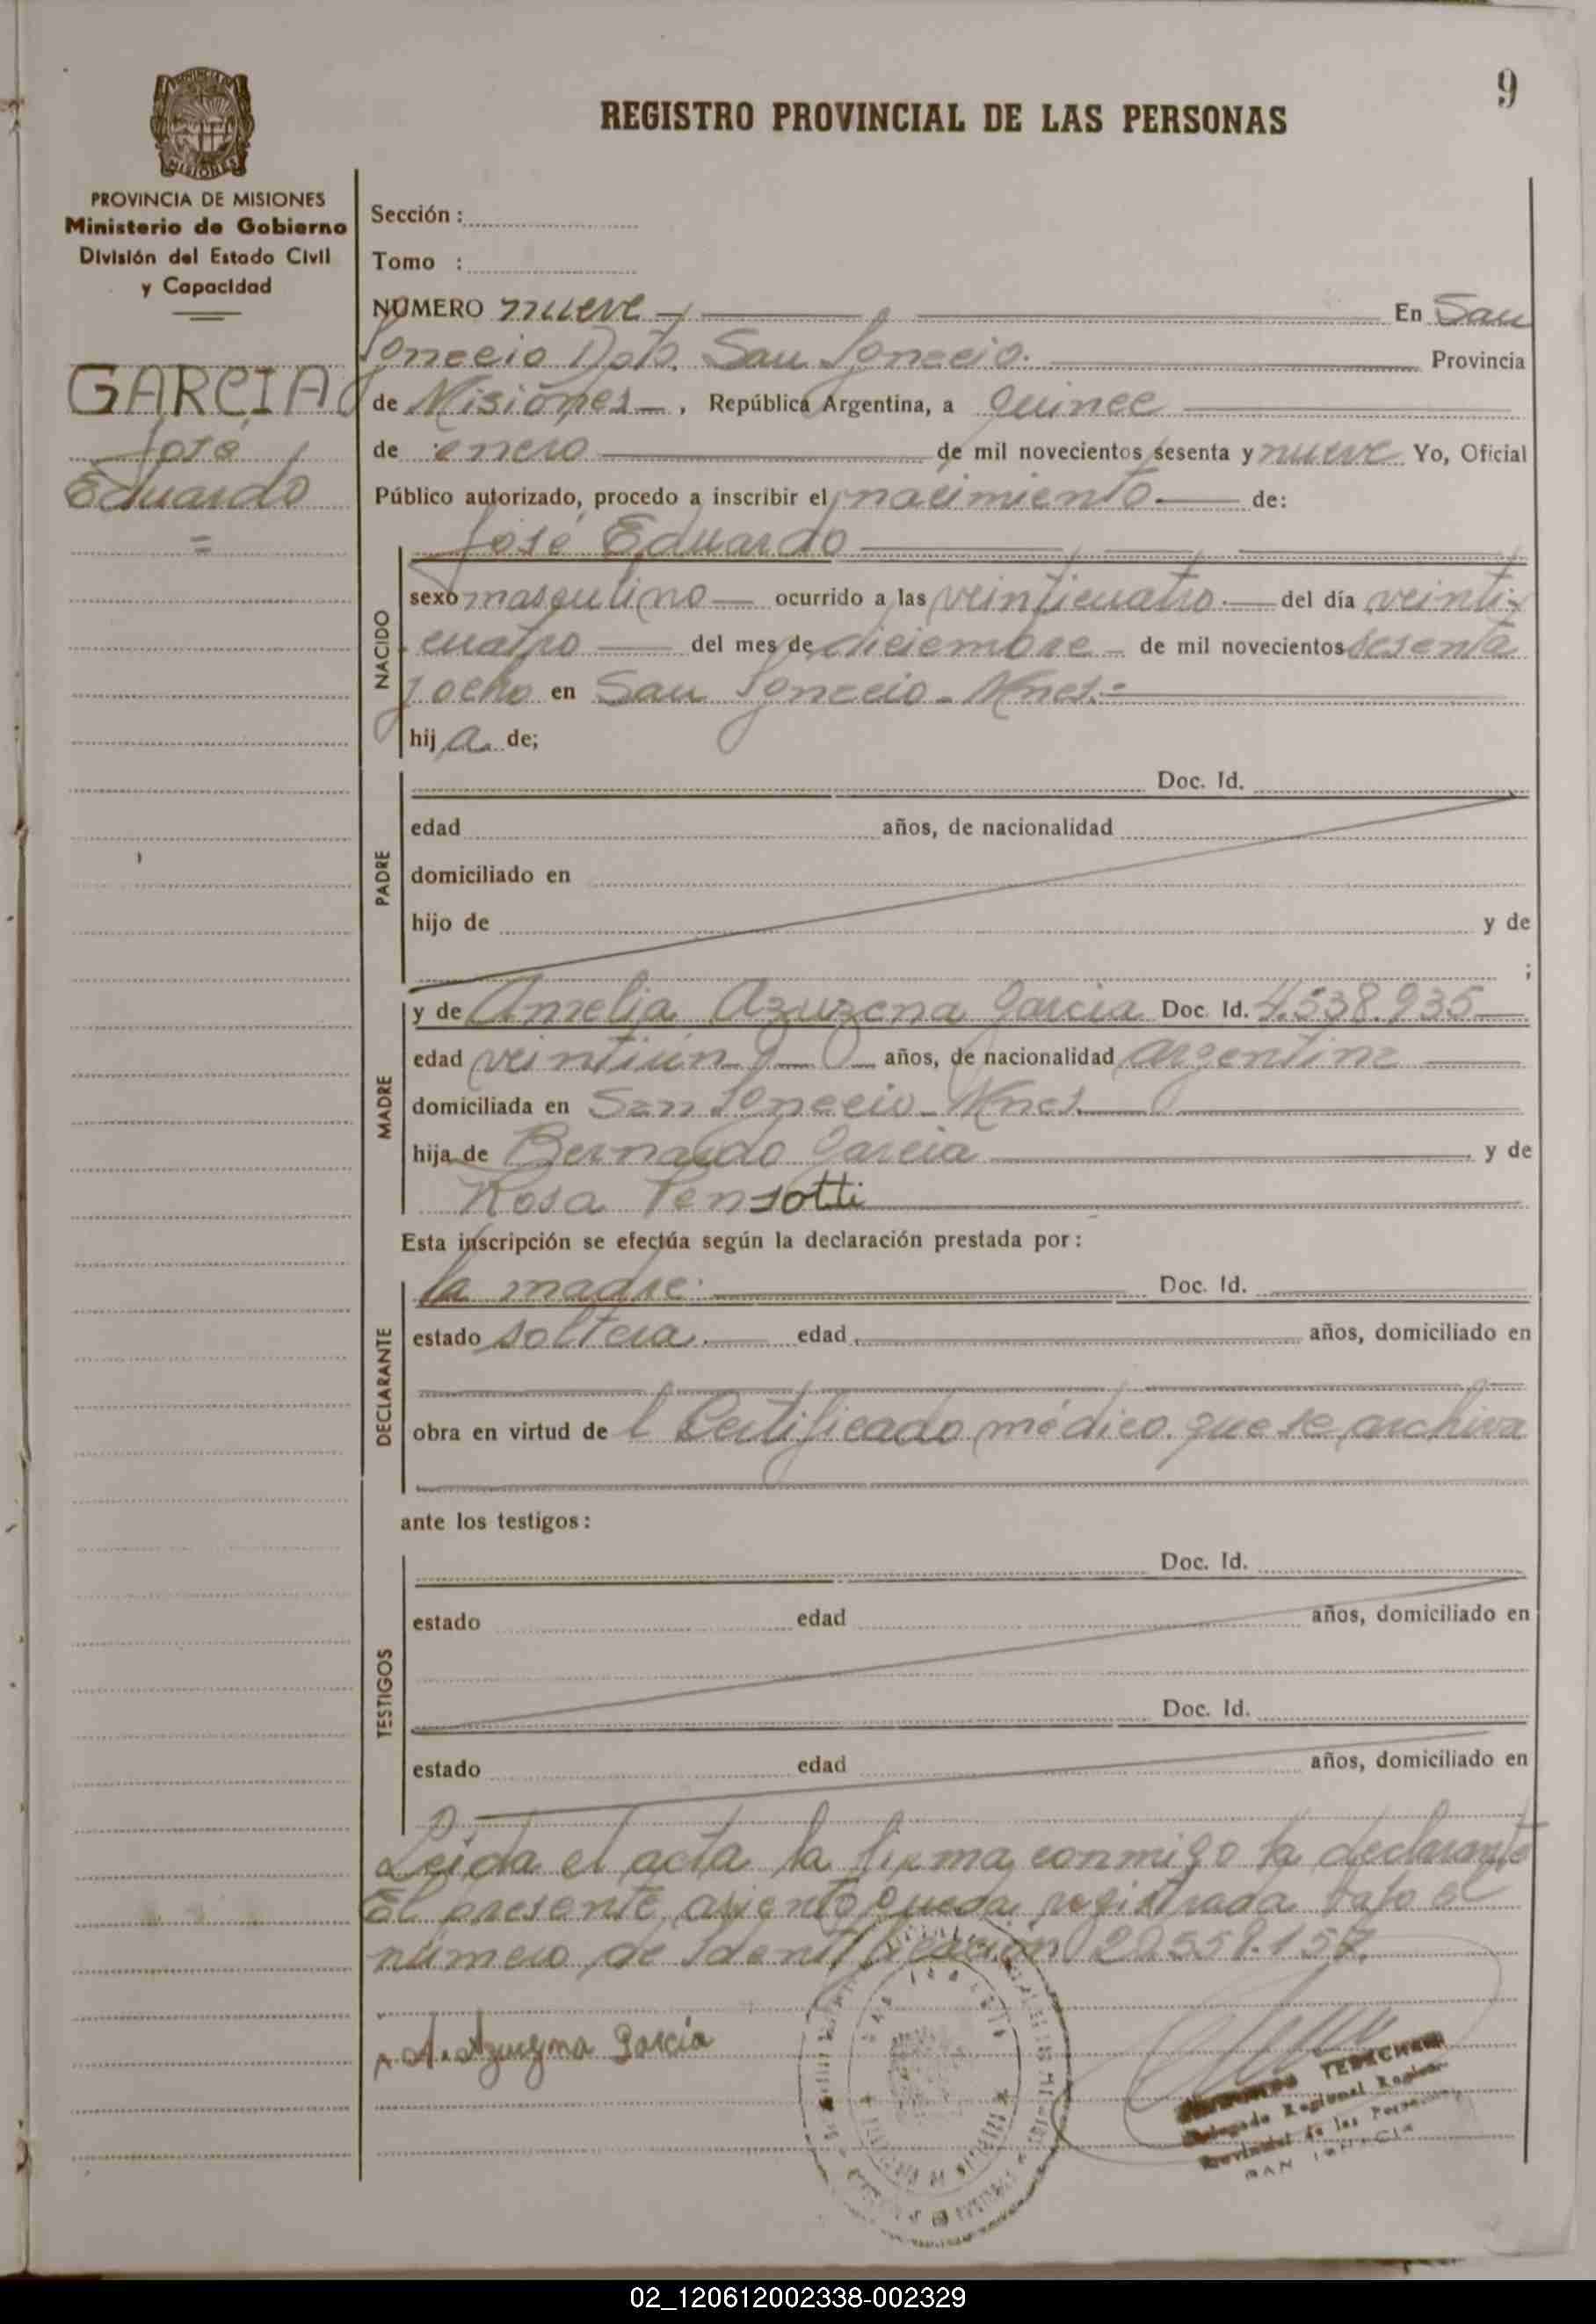 9
REGISTRO PROVINCIAL DE LAS PERSONAS
MISIONES
PROVINCIA DE MISIONES
Ministerio de Gobierno
División del Estado Civil
y Capacidad
GARCIA
José
Eduardo
=
Sección :
Tomo :
NUMERO nueve — En San
Ignacio Dpto. San Ignacio. Provincia
de Misiones —, República Argentina, a quince
de enero de mil novecientos sesenta y nueve Yo, Oficial
Público autorizado, procedo a inscribir el nacimiento. de:
José Eduardo
NACIDO
sexo masculino — ocurrido a las veinticuatro. — del día veinti-
cuatro — del mes de diciembre — de mil novecientos sesenta
y ocho en San Ignacio - Mnes.=
hij a de;
PADRE
Doc. Id.
edad años, de nacionalidad
domiciliado en
hijo de y de
;
MADRE
y de Amelia Azuzena Garcia Doc. Id. 4.538.935
edad veintiún — años, de nacionalidad argentina
domiciliada en San Ignacio - Mnes.
hija de Bernardo Garcia y de
Rosa Pensotti
Esta inscripción se efectúa según la declaración prestada por :
DECLARANTE
la madre. Doc. Id.
estado soltera. edad años, domiciliado en
obra en virtud de l Certificado médico que se archiva
ante los testigos :
TESTIGOS
Doc. Id.
estado edad años, domiciliado en
Doc. Id.
estado edad años, domiciliado en
Leida el acta la firma conmigo la declarante
El presente asiento queda registrada bajo el
número de Identificación 20.559.157.
A. Azuzena Garcia
Delegado Regional
Provincial de las
SAN IGNACIO
02_120612002338-002329